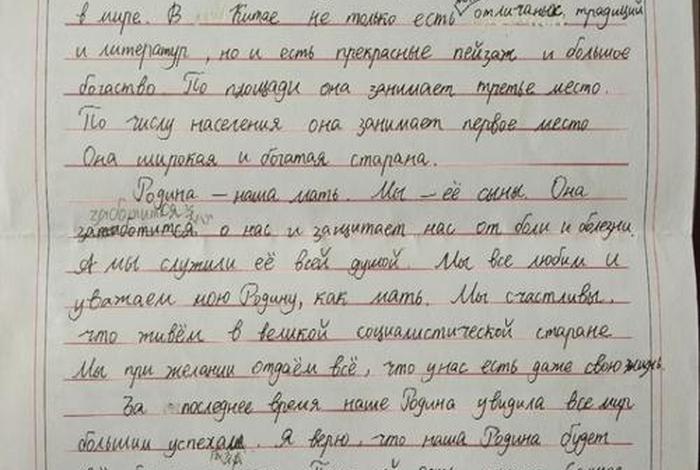 в мире. В Китае не только есть отличаньос, традиций
и литератур, но и есть прекрасные пейзаж и большое
богаство. По площади она занимает третье место.
По числу населения она занимает первое место
Она широкая и богатая старана.
Родина – наша мать. Мы – её сыны. Она
заботится
о нас и защитает нас от боли и болезни.
А мы служили её всей душой. Мы все любим и
уважаем мою Родину, как мать. Мы счастливы.
что живём в великой социалистической старане
Мы при желании отдаём всё, что у нас есть даже свою жизнь.
За последнее время наше Родина увидила все мир
большии успехам. Я верю, что наша Родина будет